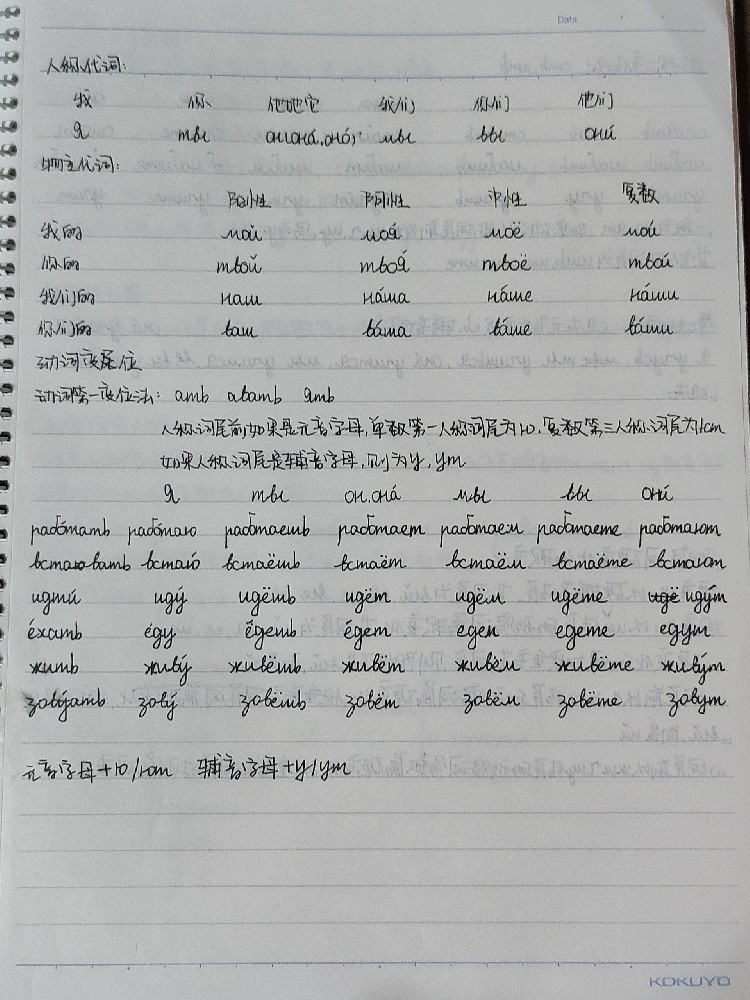 Date
人称代词:
我 你 他她它 我们 你们 他们
я ты он(она́, оно́) мы вы они́
物主代词:
阳性 阴性 中性 复数
我的 мой моя́ моё мои́
你的 твой твоя́ твоё твои́
我们的 наш на́ша на́ше на́ши
你们的 ваш ва́ша ва́ше ва́ши
动词变位
动词第一变位法: ать авать ять
人称词尾前如果是元音字母,单数第一人称词尾为ю,复数第三人称词尾为ют
如果人称词尾是辅音字母,则为у, ут
я ты он.она́ мы вы они́
рабо́тать рабо́таю работаешь работает работаем работаете работают
вставать встаю́ встаёшь встаёт встаём встаёте встают
идти́ иду́ идёшь идёт идём идёте иду́т
е́хать е́ду е́дешь е́дет едем едете едут
жить живу́ живёшь живёт живём живёте живу́т
зову́ать зову́ зовёшь зовёт зовём зовёте зовут
元音字母+ю/ют 辅音字母+у/ут
KOKUYO